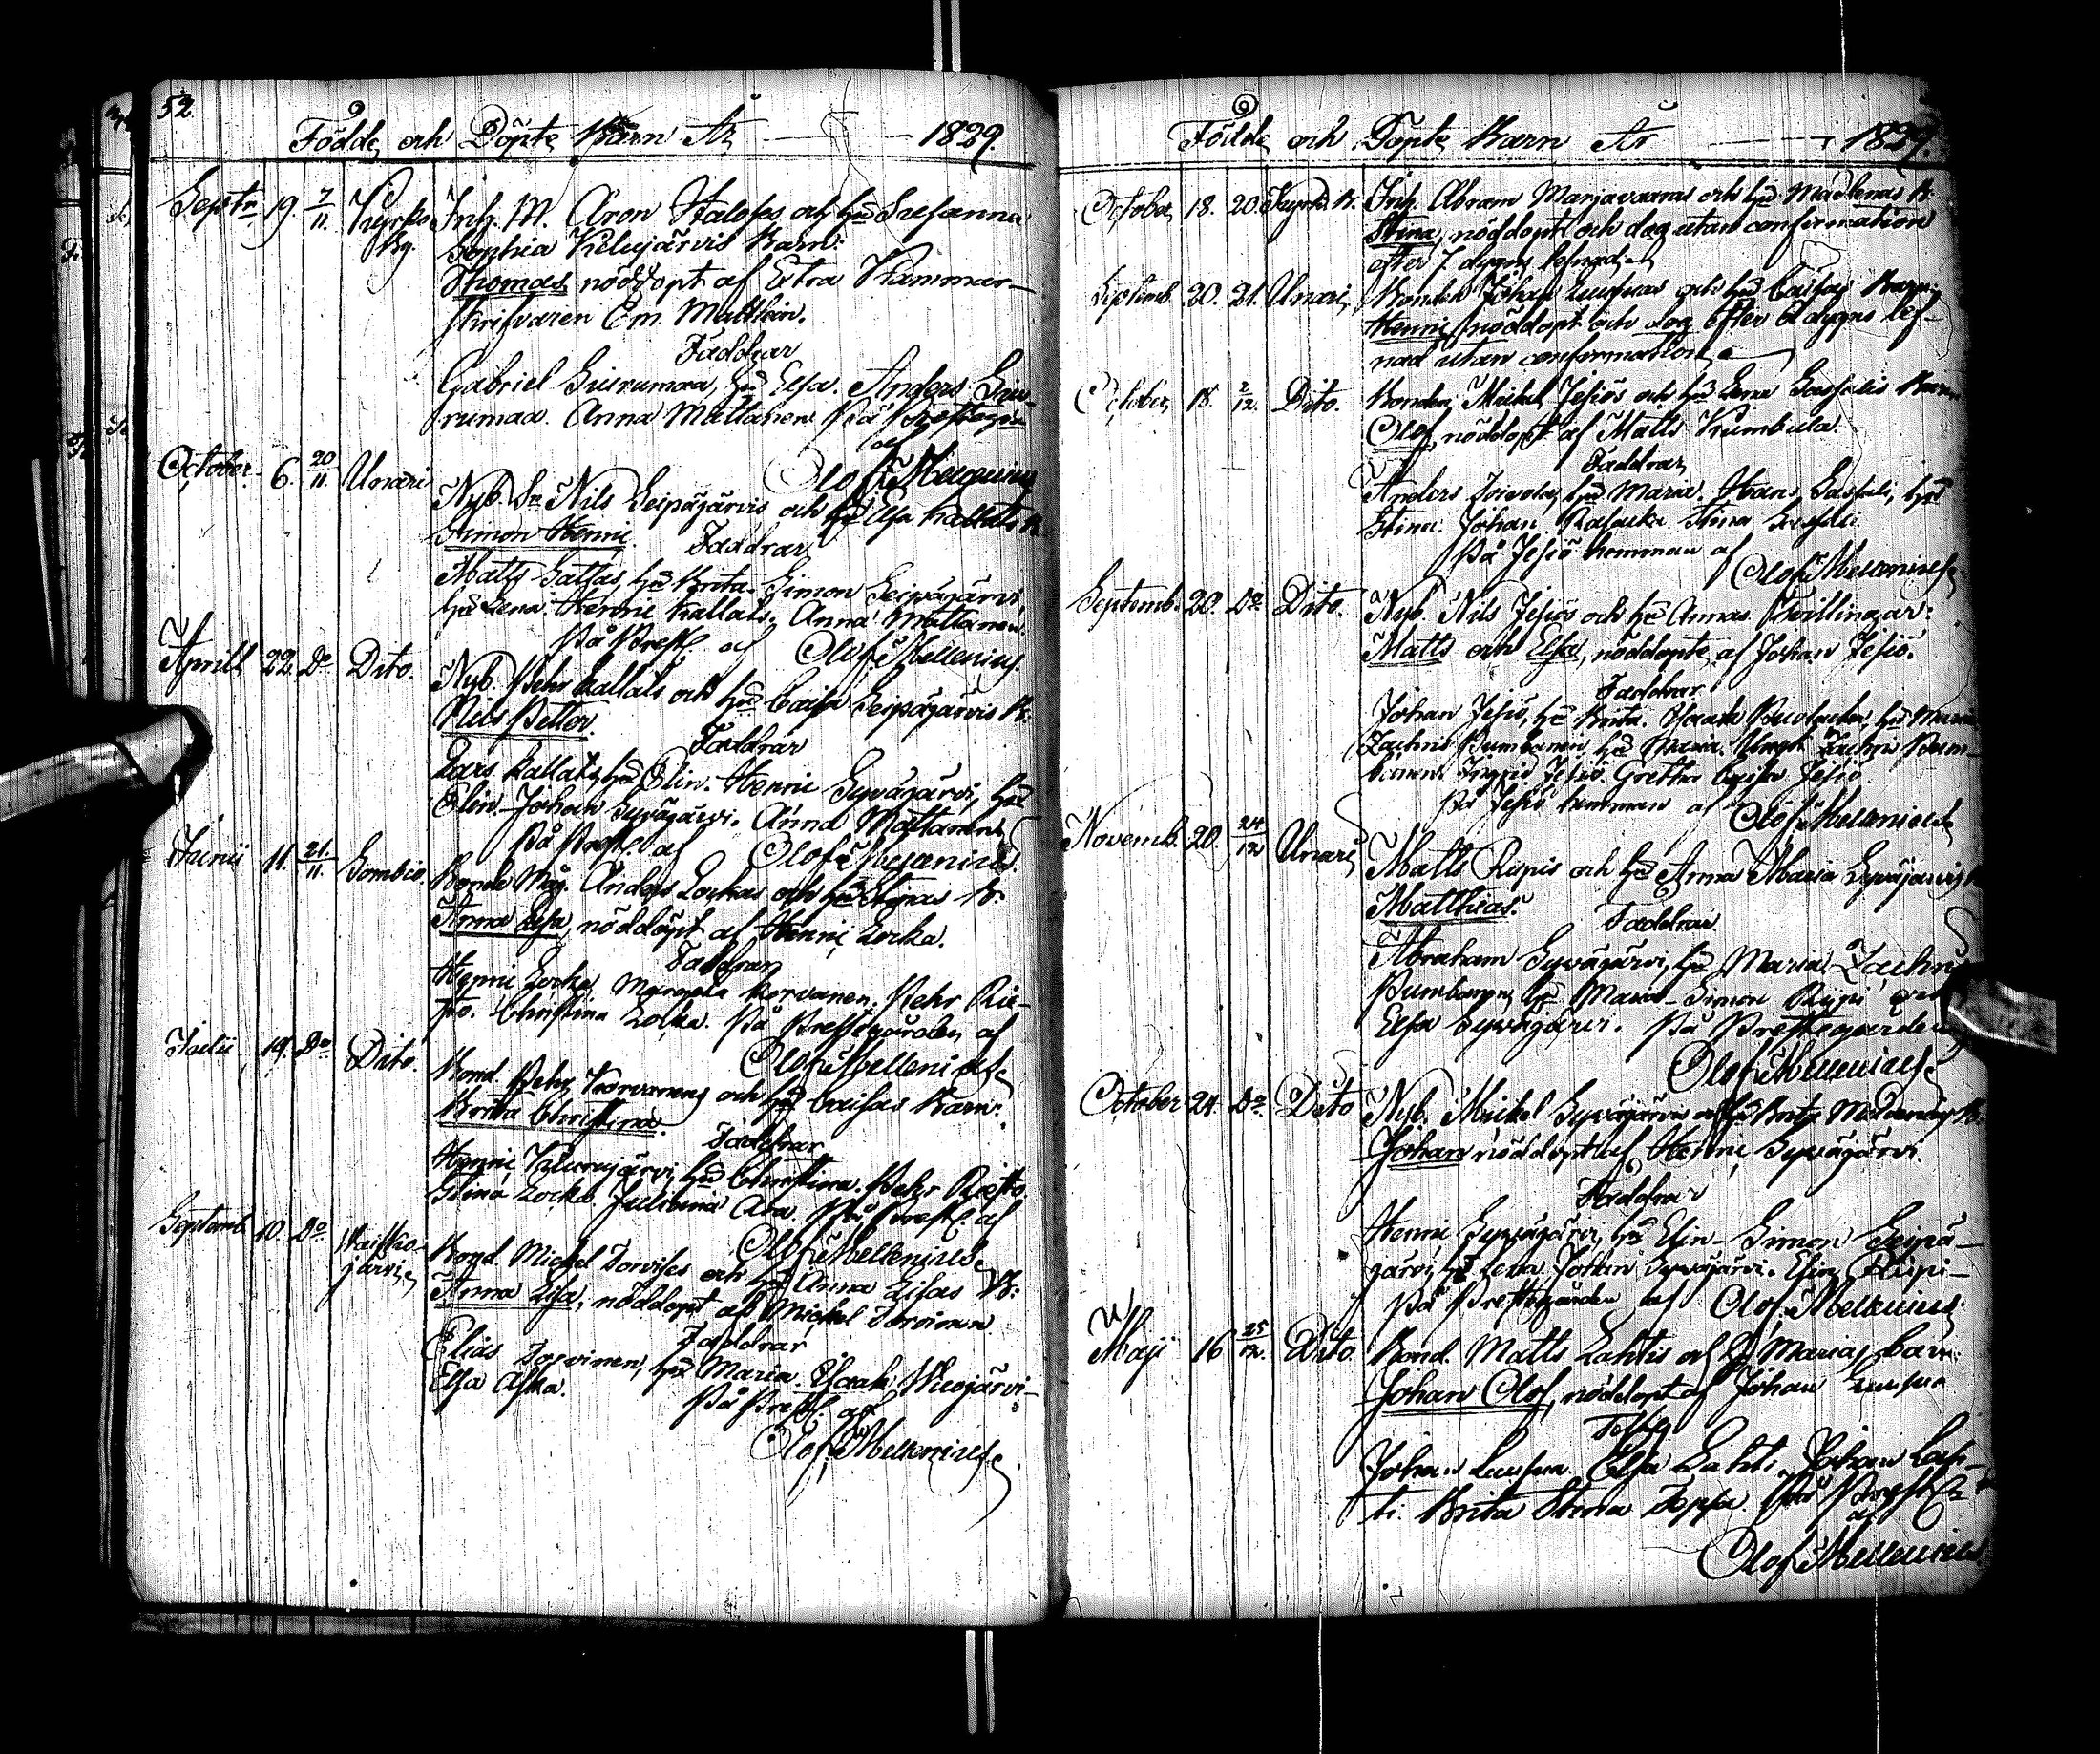 52
Födde och Döpte Barn År 1829.
Septr 19. 7/11. Kyrko Inh. M. Aron och hu Susanna
By Sophia Kelujärvis Barn:
Thomas, nöddöpt af Extra Kammar-
skrifvaren Em. Mathlin.
Faddrar
Gabriel Siurumaa, hu Elsa. Anders Siu-
rumaa. Anna Mattanen. På Prestegn
af
Olof Mellenius
October 6. 20/11. Unari Nyb. Sn Nils Seipäjärvis och hu Elsa Kallats B.
Simon Henric.
Faddrar
Matts hu Brita. Simon Seipäjärvi,
hu Lena. Henric Kallats. Anna Mattanen.
På Prestg. af Olof Mellenius.
Aprill 22. Do Dito. Nyb. Pehr Kallats och hu Caisa Seipäjärvis B:
Nils Petter.
Faddrar
Lars Kallats, hu Elin. Henric Sywäjärvi, hu
Elin. Johan Sywäjärvi. Anna Mattanen
På Prestg. af Olof Mellenius.
Junii 11. 21/11. Sombio Bonde Måg. Anders Lockas och hu Stinas B:
Anna Elsa, nöddöpt af Henric Locka.
Faddrar
Henric Locka, Margeta Korvanen. Pehr Rie-
sto. Christina Locka. På Prestegården af
Olof Mellenius.
Julii 19. Do Dito. Bond. Pehr Korvanens och hu Caisas Barn:
Brita Christina.
Faddrar
Henric Kelujärvi, hu Christina. Pehr Riesto.
Stina Locka. Juliana Ara. På Prestg. af
Olof Mellenius.
Septemb. 10. Do Waisko- Bond. Mickel Torvises och hu Anna Lisas B:
järvi Anna Lisa, nöddöpt af Mickel Torvinen.
Faddrar
Elias Torvinen, hu Maria. Isaak Wuojärvi-
Elsa Aska.
På Prestg. af
Olof Mellenius.
Födde och Döpte Barn År 1829.
October 18. 20. Kyrko B. Inh. Abram Marjavaaras och hu Madlenas B:
Stina, nöddöpt och dog utan confirmation
efter 7 dygns lefnad.
Septemb. 20. 21. Unari, Bonden Johan Luusuas och hu Caisas Barn:
Henric, nöddöpt och dog efter 2 dygns lef-
nad utan confirmation.
October 18. 2/12. Dito. Bonden Mickel Jesiös och hu Lena Barn
Olof, nöddöpt af Matts Kumbula.
Faddrar
Anders Toivola, hu Maria. Hans hu
Stina. Johan Stina
På Jesiö hemman af
Olof Mellenius.
Septemb. 20. Do Dito. Nyb. Nils Jesiös och hu Annas Tvillingar:
Matts och Elsa, nöddöpte af Johan Jesiö.
Faddrar
Johan Jesiö, hu Brita. Isaak hu Maria
Zachris Pumbanen, hu Maria. Ungk. Zachris Pum-
banen. Ingrid Jesiö. Gretha Caisa Jesiö.
På Jesiö hemman af Olof Mellenius.
Novemb. 20. 24/12 Unari, Matts Riipis och hu Anna Maria Sywäjärvis B
Matthias.
Faddrar
Abraham Sywäjärvi, hu Maria. Zachris
Pumbanen, hu Maria. Simon Riipi och
Elsa Sywäjärvi. På Prestegården
Olof Mellenius.
October 24. Do. Dito Nyb. Mickel Sywäjärvis och hu Brita B:
Johan, nöddöpt af Henric Sywäjärvi.
Faddrar
Henric Sywäjärvi, hu Elin. Simon Seipä-
järvi, hu Lena. Johan Sywäjärvi. Elin Riipi-
På Prestegården af Olof Mellenius.
Maji 16 25/12. Dito Bond. Matts Lahtis och hu Marias barn:
Johan Olof, nöddöpt af Johan Luusua
Test.
Johan Luusua. Elsa Lahti. Johan Lah-
ti. Brita Stina På
af
Olof Mellenius